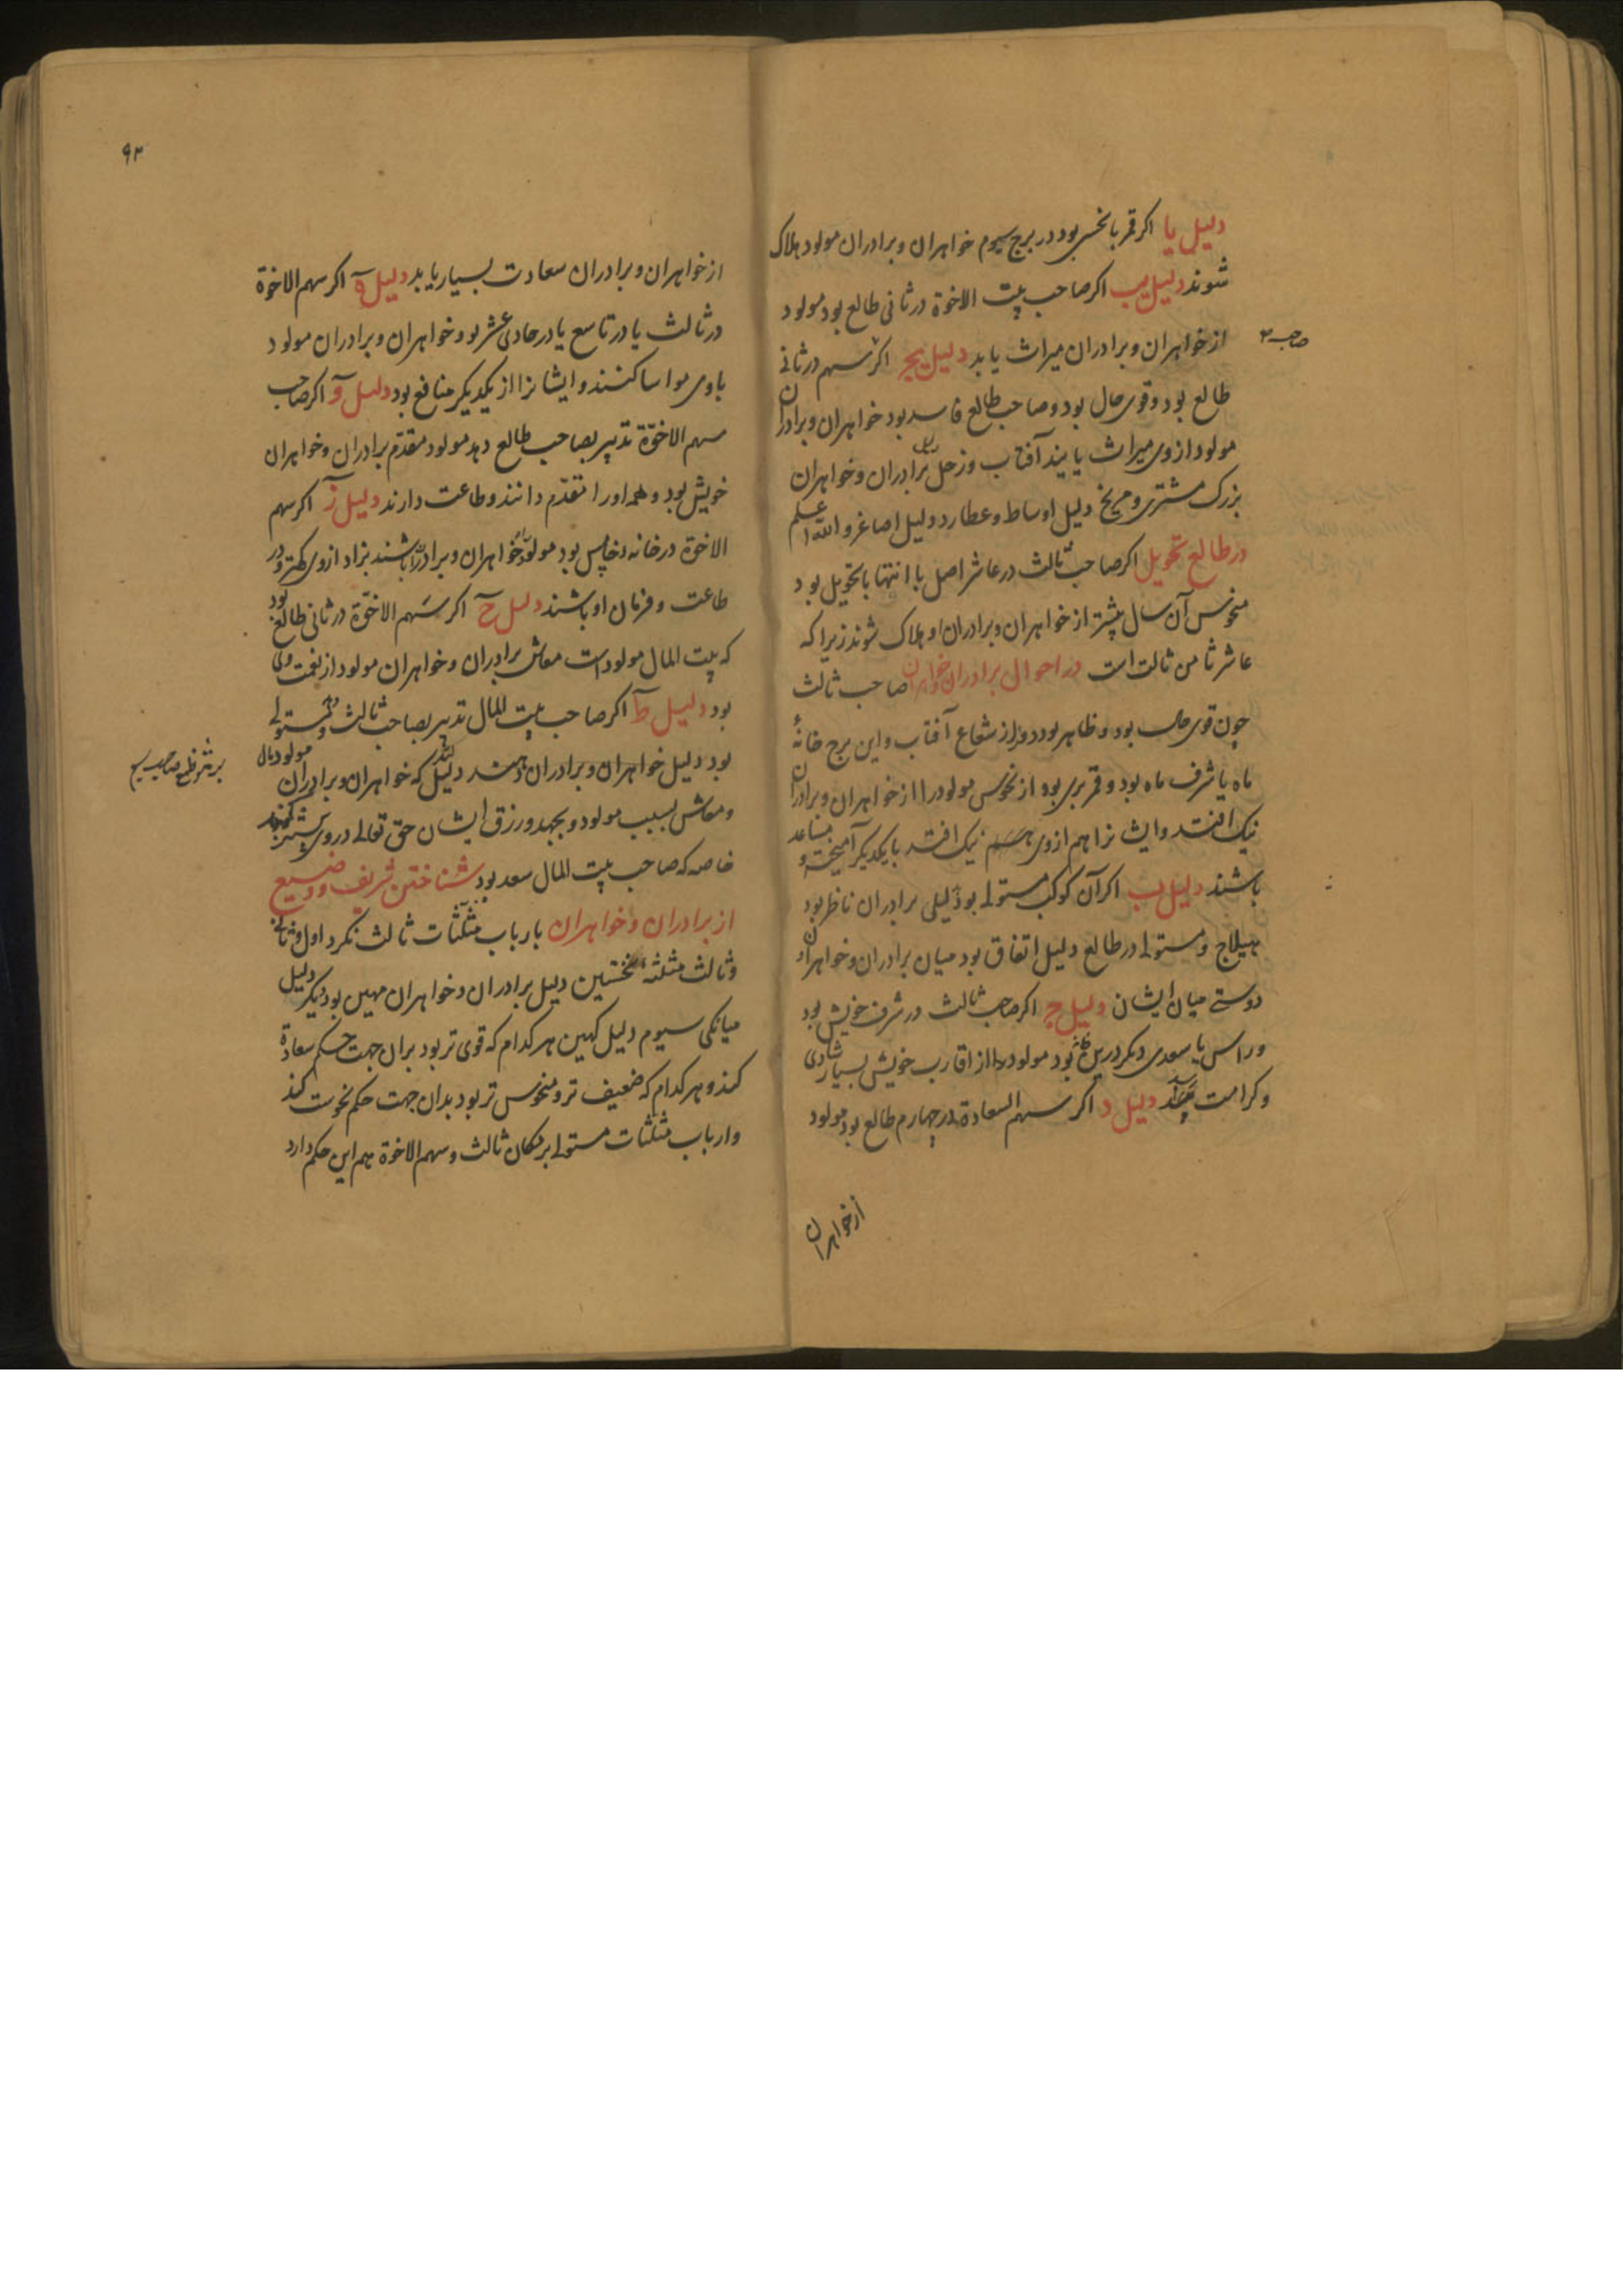 دلیل یا اکر قمر با نحسی بود در برج سیوم خواهران و برادران مولود هلاک
شوند دلیل یب اکر صاحب بیت الاخوة در ثانی طالع بود مولود
از خواهران و برادران میراث یابد دلیل یج اکر سهم در ثانی
صاحب
طالع بود و قوی حال بود و صاحب طالع فاسد بود خواهران و برادران
مولود از وی میراث یابند آفتاب و زحل برادران و خواهران
بزرک مشتری و مریخ دلیل اوساط و عطارد دلیل اصاغر و الله اعلم
در طالع تحویل اکر صاحب ثالث در عاشر اصل با انتها یا تحویل بود
منحوس آن سال بیشتر از خواهران و برادران او هلاک شوند زیرا که
عاشر ثامن ثالث است در احوال برادران و خواهران صاحب ثالث
چون قوی حال بود و ظاهر بود دور از شعاع آفتاب و این برج خانهٔ
ماه یا شرف ماه بود و قمر بری بود از نحوس مولود را از خواهران و برادران
نیک افتد و ایشانرا هم از وی نیک افتد با یکدیکر آمیخته و مساعد
باشند دلیل ب اکر آن کوکب مستولی بود دلیلی برادران ناظر بود
بهیلاج و مستولی در طالع دلیل اتفاق بود میان برادران و خواهران و
دوستی میان ایشان دلیل ج اکر صاحب ثالث در شرف خویش بود
و راس یا سعدی دیکر درین خانه بود مولود را از اقارب خویش بسیار شادی
و کرامت رسد دلیل د اکر سهم السعادة در چهارم طالع بود مولود
از خواهران
۹۳
از خواهران و برادران سعادت بسیار یابد دلیل ه اکر سهم الاخوة
در ثالث یا در تاسع یا در حادی عشر بود خواهران و برادران مولود
با وی مواسا کنند و ایشانرا از یکدیکر منافع بود دلیل و اکر صاحب
سهم الاخوة تدبیر بصاحب طالع دهد مولود مقدم برادران و خواهران
خویش بود و همه او را متقدم دانند و طاعت دارند دلیل ز اکر سهم
الاخوة در خانه خامس بود مولود را خواهران و برادران باشند بزاد از وی کهتر و در
طاعت و فرمان او باشند دلیل ح اکر سهم الاخوة در ثانی طالع بود
که بیت المال مولود است معاش برادران و خواهران مولود از نعمت وی
بود دلیل ط اکر صاحب بیت المال تدبیر بصاحب ثالث دهد و مستولی
بود دلیل خواهران و برادران دهنده دلیل کند که خواهران و برادران مولود مال
و معاش بسبب مولود و بجهد و رزق ایشان حق تعالی در وی
خاصه که صاحب بیت المال سعد بود شناختن شریف و وضیع
از برادران و خواهران بارباب مثلثات ثالث نکرد اول و ثانی
و ثالث مثلثهٔ نخستین دلیل برادران و خواهران مهین بود دیکر دلیل
میانکی سیوم دلیل کهین هر کدام که قوی تر بود بران جهت حکم سعادة
کند و هر کدام که ضعیف تر و منحوس تر بود بدان جهت حکم نحوست کند
و ارباب مثلثات مستولی بر مکان ثالث و سهم الاخوة هم این حکم دارد